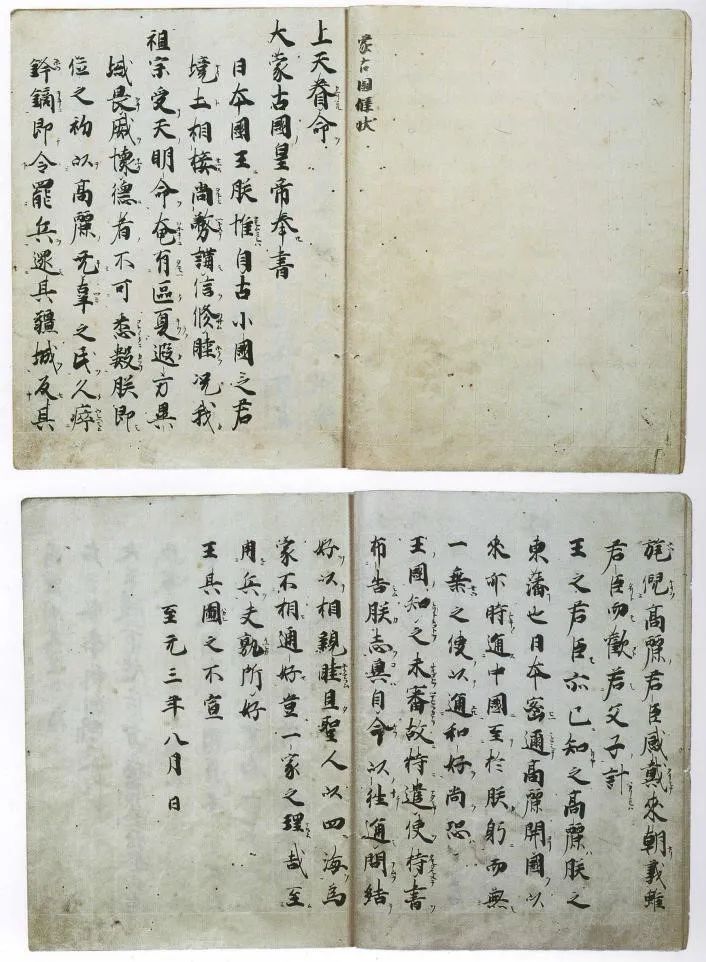 蒙古國牒状
上天眷命
大蒙古國皇帝奉書
日本國王朕惟自古小國之君
境土相接尚務講信修睦况我
祖宗受天明命奄有區夏遐方異
域畏威懷德者不可悉數朕即
位之初以高麗无辜之民久瘁
鋒鏑即令罷兵還其疆域反其
旄倪高麗君臣感戴來朝義雖
君臣而歡若父子計
王之君臣亦已知之高麗朕之
東藩也日本密邇高麗開國以
來亦時通中國至於朕躬而無
一乗之使以通和好尚恐
王國知之未審故特遣使持書
布告朕志冀自今以往通問結
好以相親睦且聖人以四海為
家不相通好豈一家之理哉至
用兵夫孰所好
王其圖之不宣
至元三年八月日